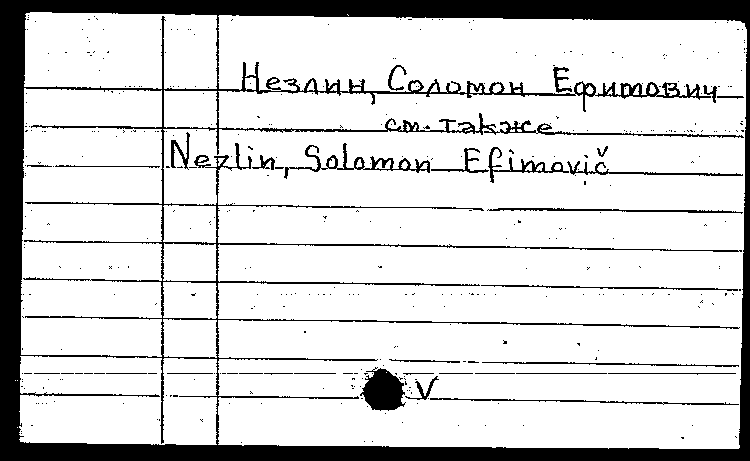 Незлин, Соломон Ефимович
см. также
Nezlin, Solomon Efimovič
V